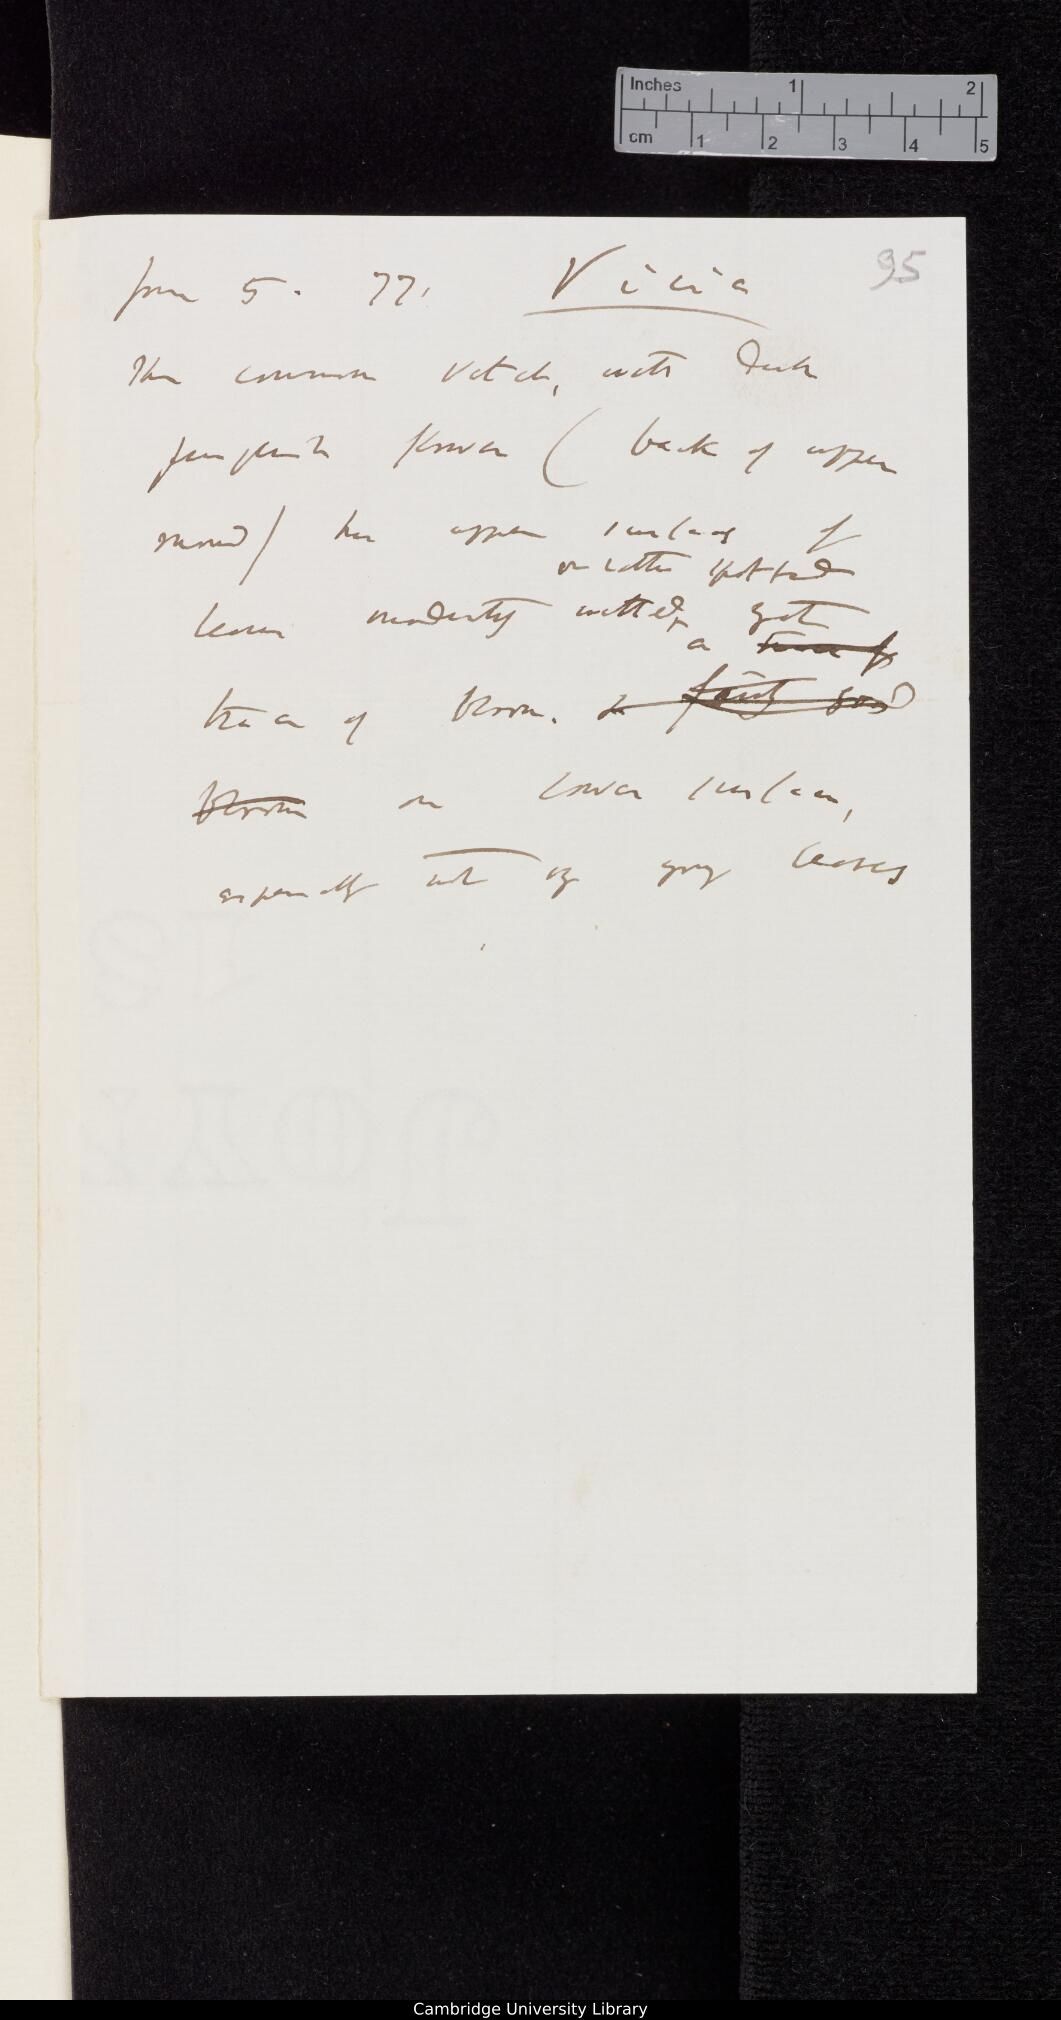 Inches 1 2
cm 1 2 3 4 5
95
June 5. 77. Vicia
The common Vetch, with dark
purplish flower (back of upper
round) has upper surfaces of
or rather spotted
leaves moderately wetted, yet
a trace of
trace of bloom. & fairly good
bloom on lower surface,
especially not by young leaves
Cambridge University Library